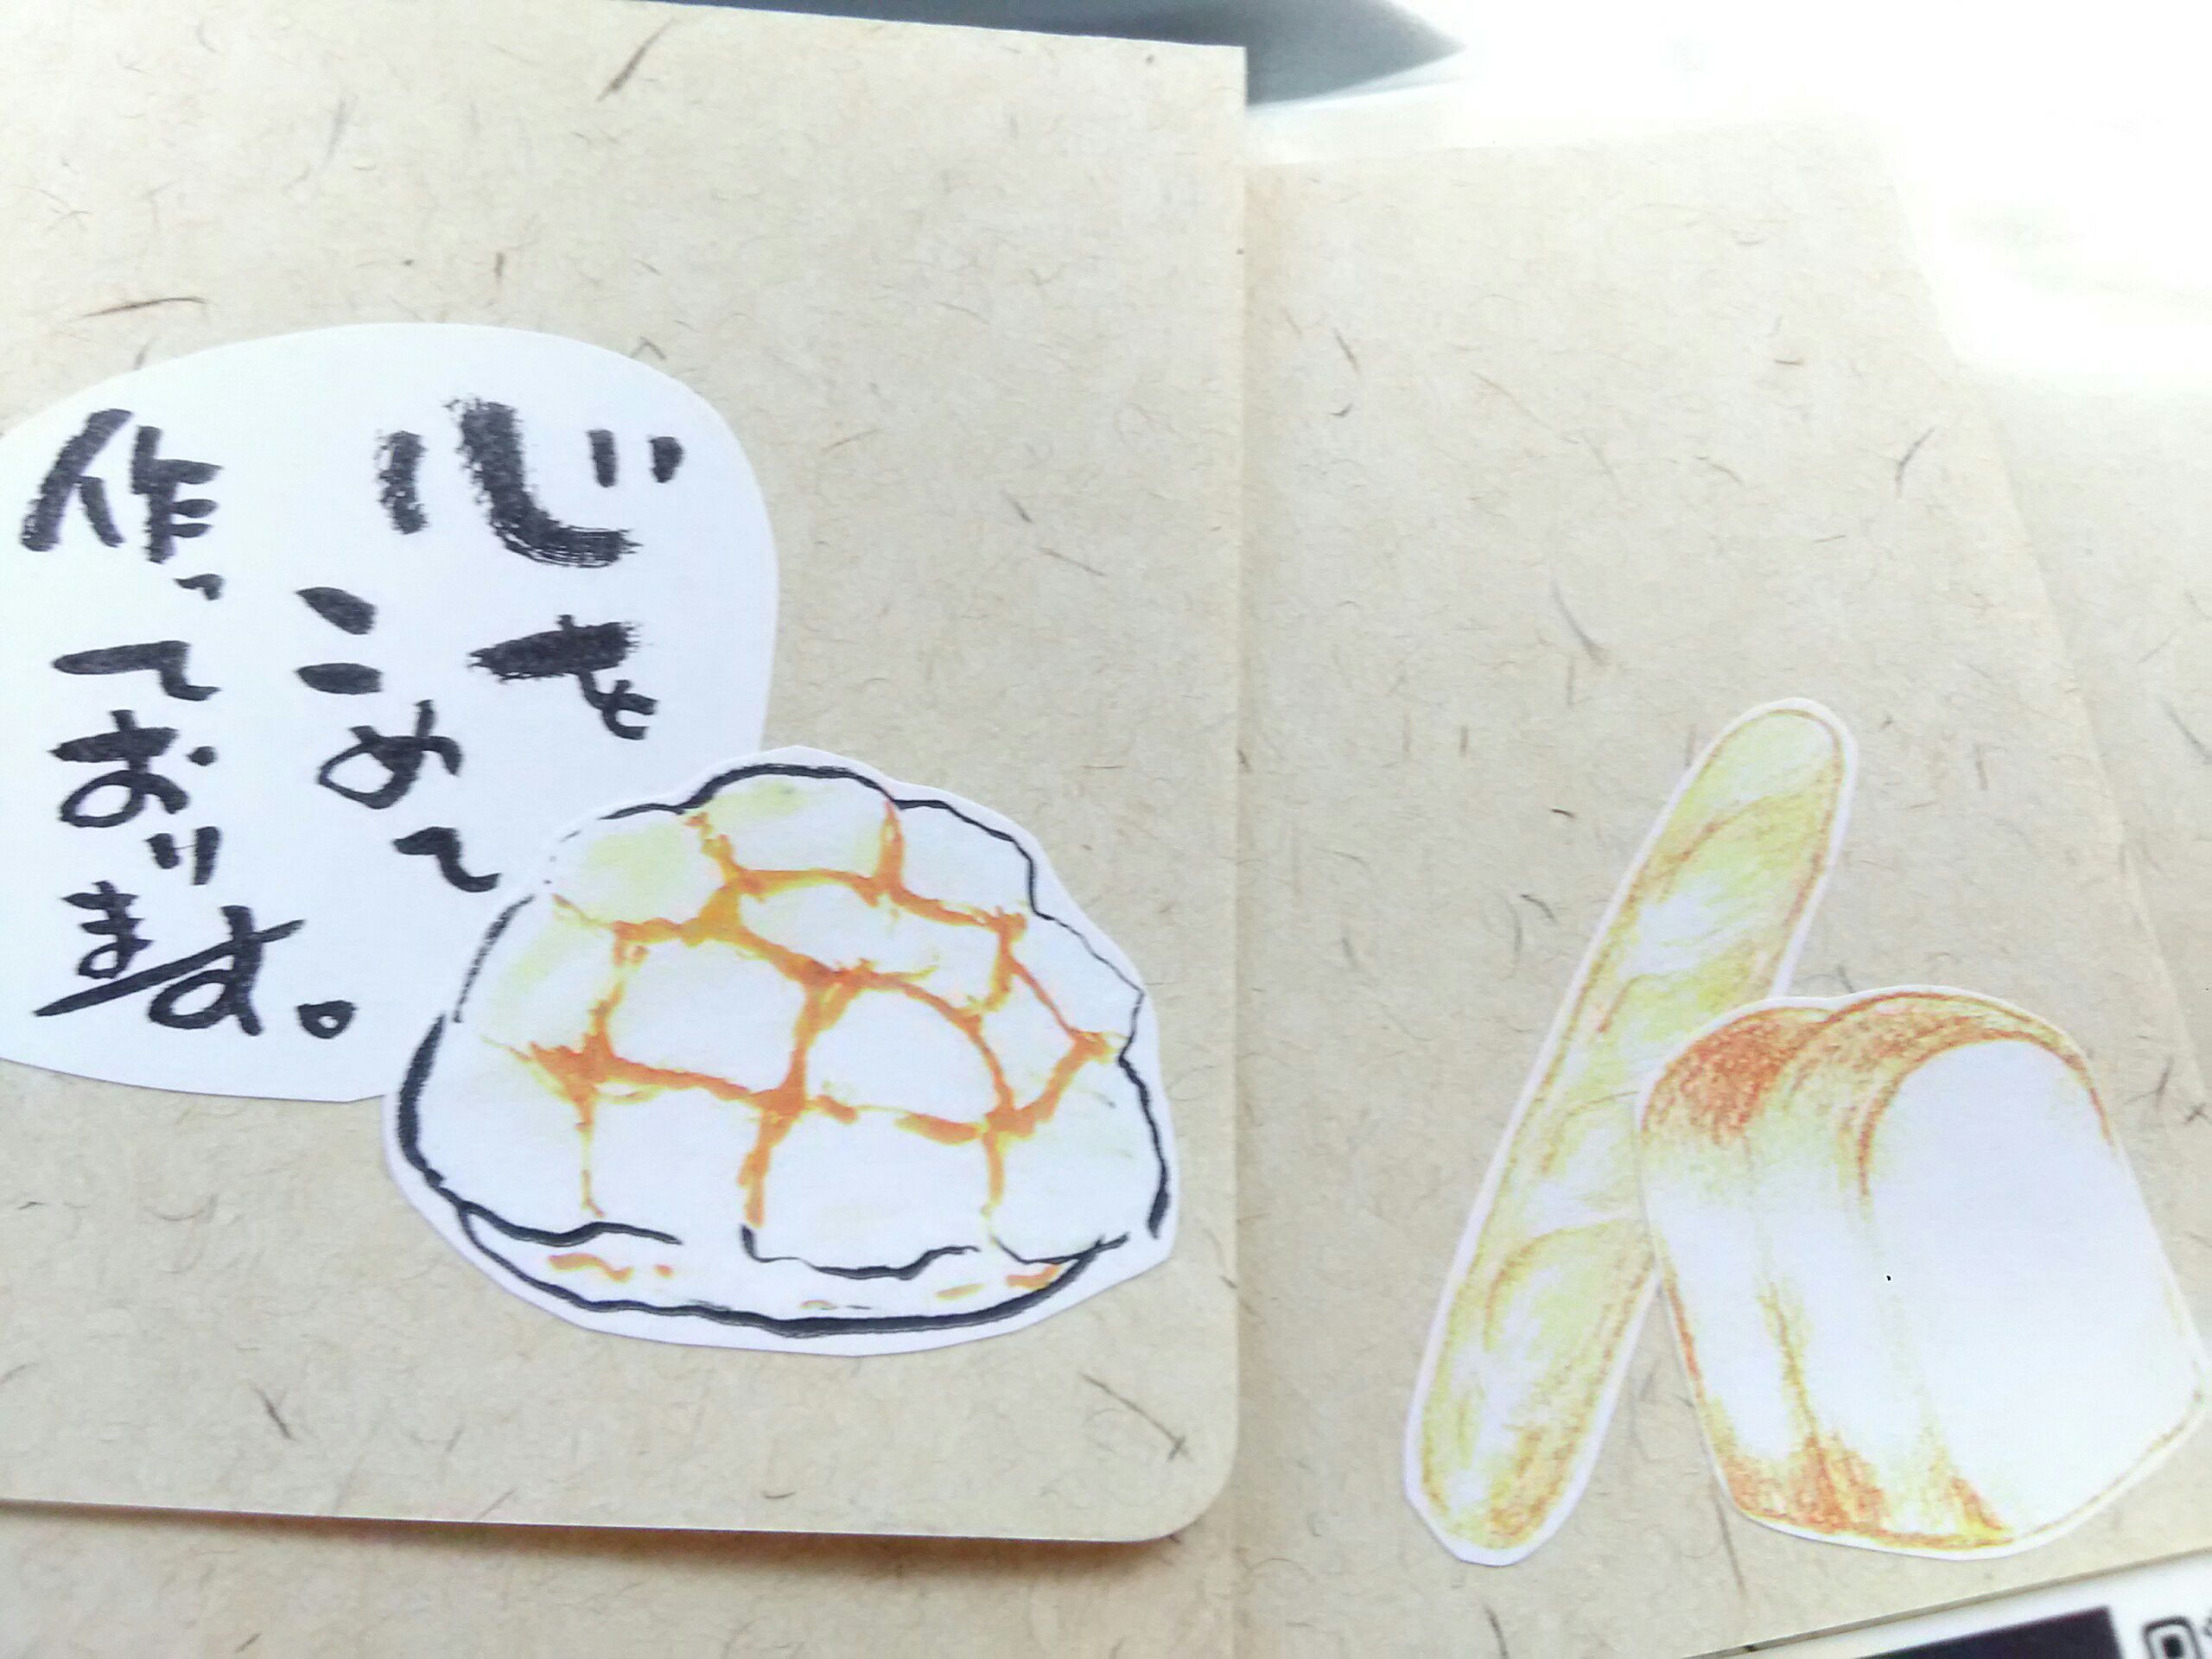 心を
こめて
作っております。